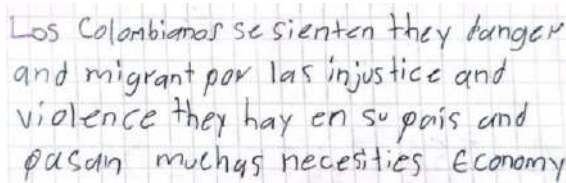 Los Colombianos se sienten they danger
and migrant por las injustice and
violence they hay en su pais and
pasan muchas necesities Economy